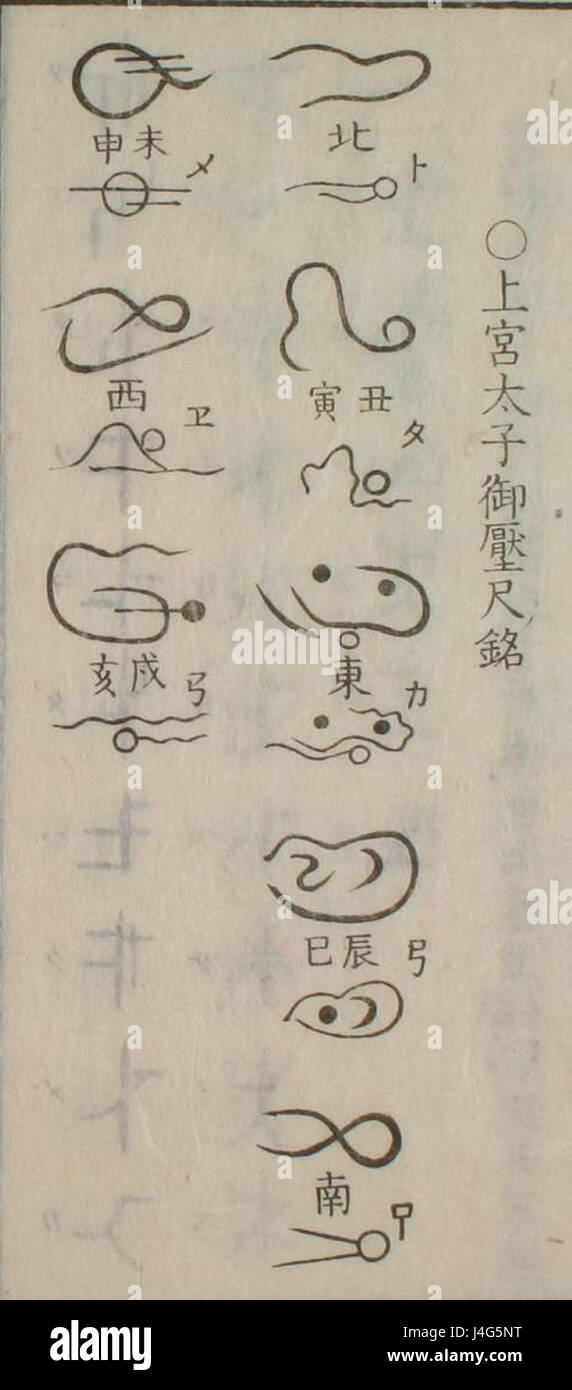 〇上宮太子御壓尺銘
北
ト
丑寅
タ
東
カ
辰巳
南
未申
メ
西
ヱ
戌亥
弓
alamy
Image ID: J4G5NT
www.alamy.com